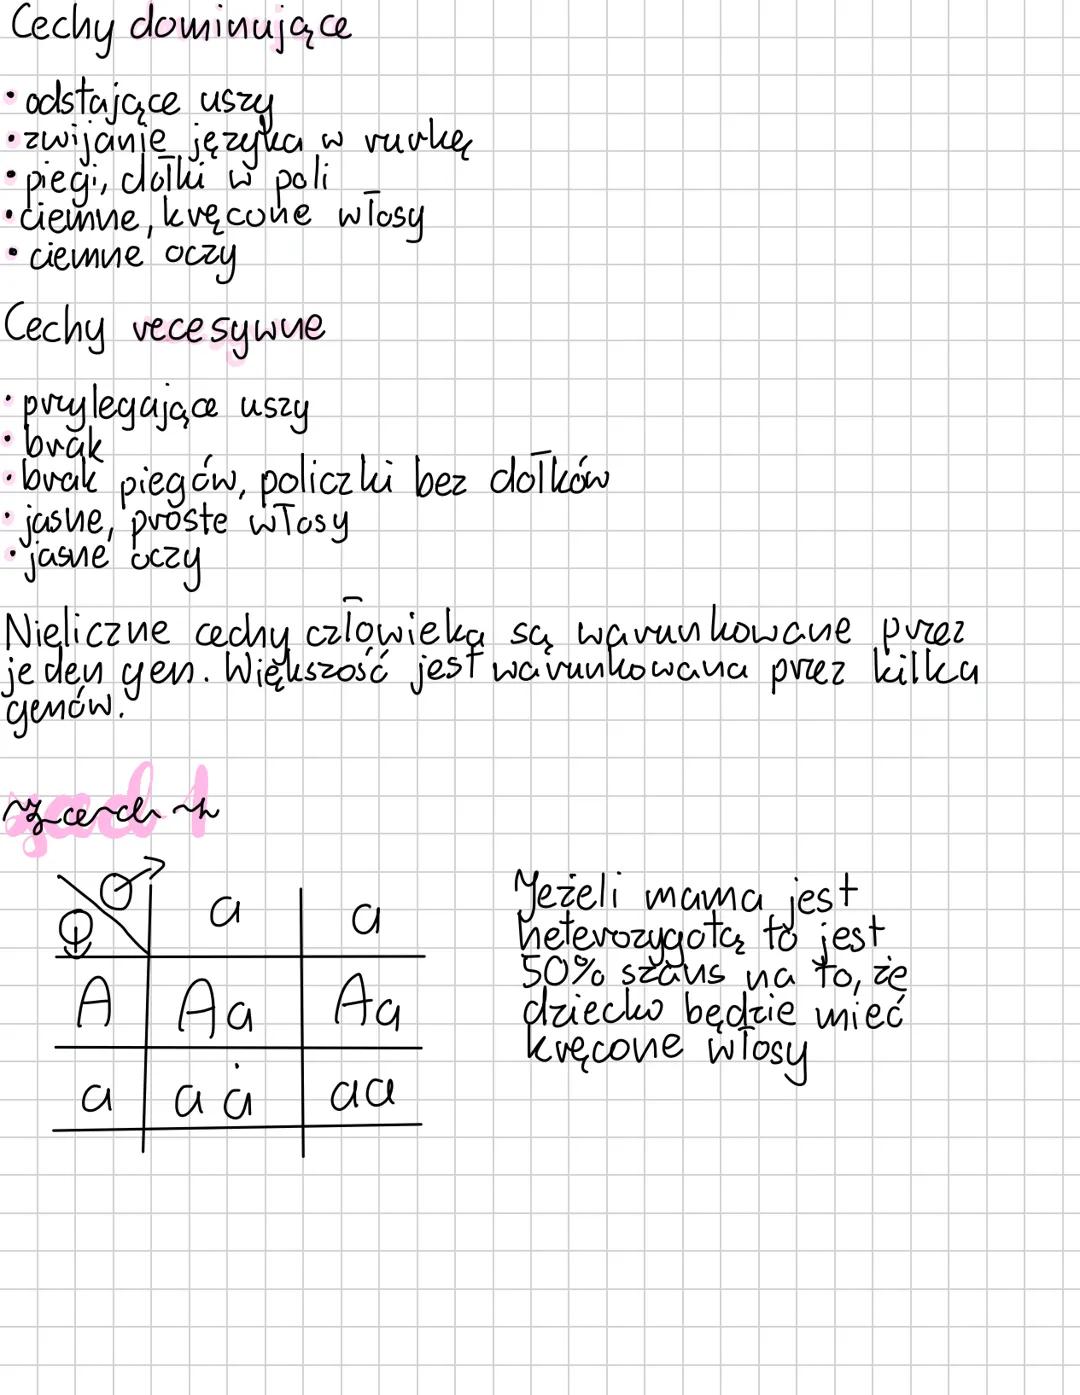 Cechy dominujące
• odstające uszy
• zwijanie języka w rurkę
• piegi, dołki w poli
• ciemne, kręcone włosy
• ciemne oczy
Cechy recesywne
• przylegające uszy
• brak
• brak piegów, policzki bez dołków
• jasne, proste włosy
• jasne oczy
Nieliczne cechy człowieka są warunkowane przez
jeden gen. Większość jest warunkowana przez kilka
genów.
zad 1
♀ ♂ a a
A Aa Aa
a aa aa
Jeżeli mama jest
heterozygotą to jest
50% szans na to, że
dziecko będzie mieć
kręcone włosy